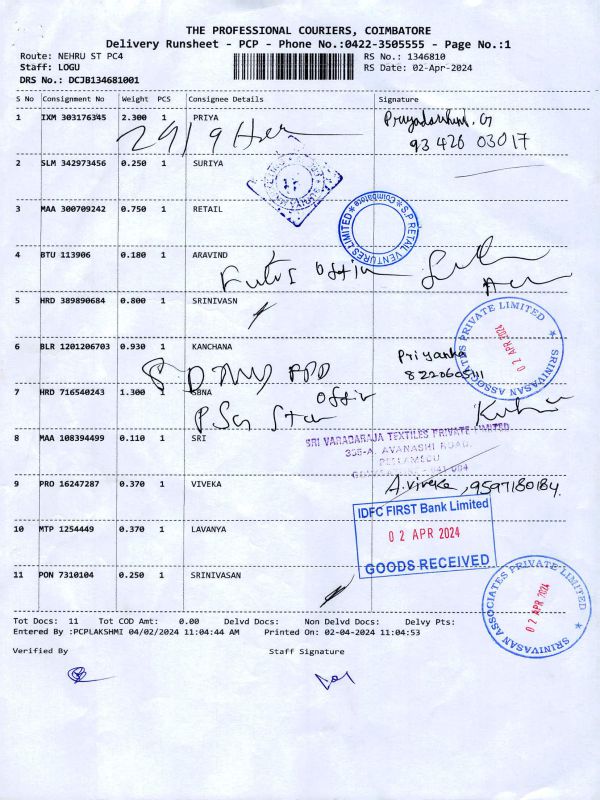 THE PROFESSIONAL COURIERS, COIMBATORE
Delivery Runsheet - PCP - Phone No.:0422-3505555 - Page No.:1
Route: NEHRU ST PC4
RS No.: 1346810
Staff: LOGU
RS Date: 02-Apr-2024
DRS No.: DCJB134681001
S No Consignment No Weight PCS Consignee Details Signature
1 IXM 303176345 2.300 1 PRIYA
93426 03017
2 SLM 342973456 0.250 1 SURIYA
3 MAA 300709242 0.750 1 RETAIL
S.P RETAIL VENTURES LIMITED Coimbatore
4 BTU 113906 0.180 1 ARAVIND
5 HRD 389890684 0.800 1 SRINIVASN
SRINIVASAN ASSOCIATES PRIVATE LIMITED
02 APR 2024
6 BLR 1201206703 0.930 1 KANCHANA
Priyanka
7 HRD 716540243 1.300 1 SBNA
8 MAA 108394499 0.110 1 SRI
SRI VARADARAJA TEXTILES PRIVATE LIMITED
AVANASHI ROAD,
9 PRO 16247287 0.370 1 VIVEKA
A.Viveka, 9597180184.
10 MTP 1254449 0.370 1 LAVANYA
IDFC FIRST Bank Limited
02 APR 2024
GOODS RECEIVED
11 PON 7310104 0.250 1 SRINIVASAN
SRINIVASAN ASSOCIATES PRIVATE LIMITED
02 APR 2024
Tot Docs: 11 Tot COD Amt: 0.00 Delvd Docs: Non Delvd Docs: Delvy Pts:
Entered By :PCPLAKSHMI 04/02/2024 11:04:44 AM Printed On: 02-04-2024 11:04:53
Verified By Staff Signature